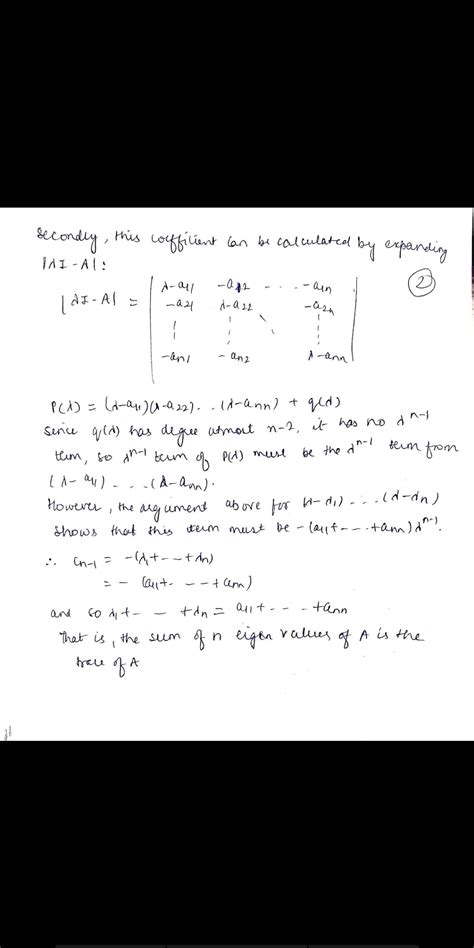 Secondly, this coefficient can be calculated by expanding
|λI-A|:
②
|λI-A| = | λ-a11 -a12 - - - -a1n
-a21 λ-a22 -a2n
-an1 -an2 λ-ann |
P(λ) = (λ-a11)(λ-a22)- - (λ-ann) + q(λ)
Since q(λ) has degree atmost n-2, it has no λ^n-1
term, so λ^n-1 term of P(λ) must be the λ^n-1 term from
(λ-a11) - - - (λ-ann).
However, the argument above for (λ-λ1) - - - (λ-λn)
shows that this term must be -(a11+- - -+ann)λ^n-1.
∴ Cn-1 = -(λ1+- - -+λn)
= - (a11+- - - +ann)
and so λ1+ - - +λn = a11+- - - +ann
That is, the sum of n eigen values of A is the
trace of A